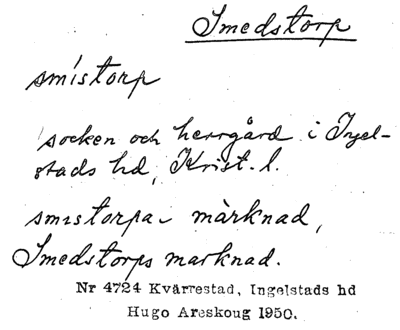 Smedstorp
smístorp
socken och herrgård i Ingel-
stads hd, Krist. l.
smıstorpa- màrknad,
Smedstorps marknad.
Nr 4724 Kvärrestad, Ingelstads hd
Hugo Areskoug 1950.